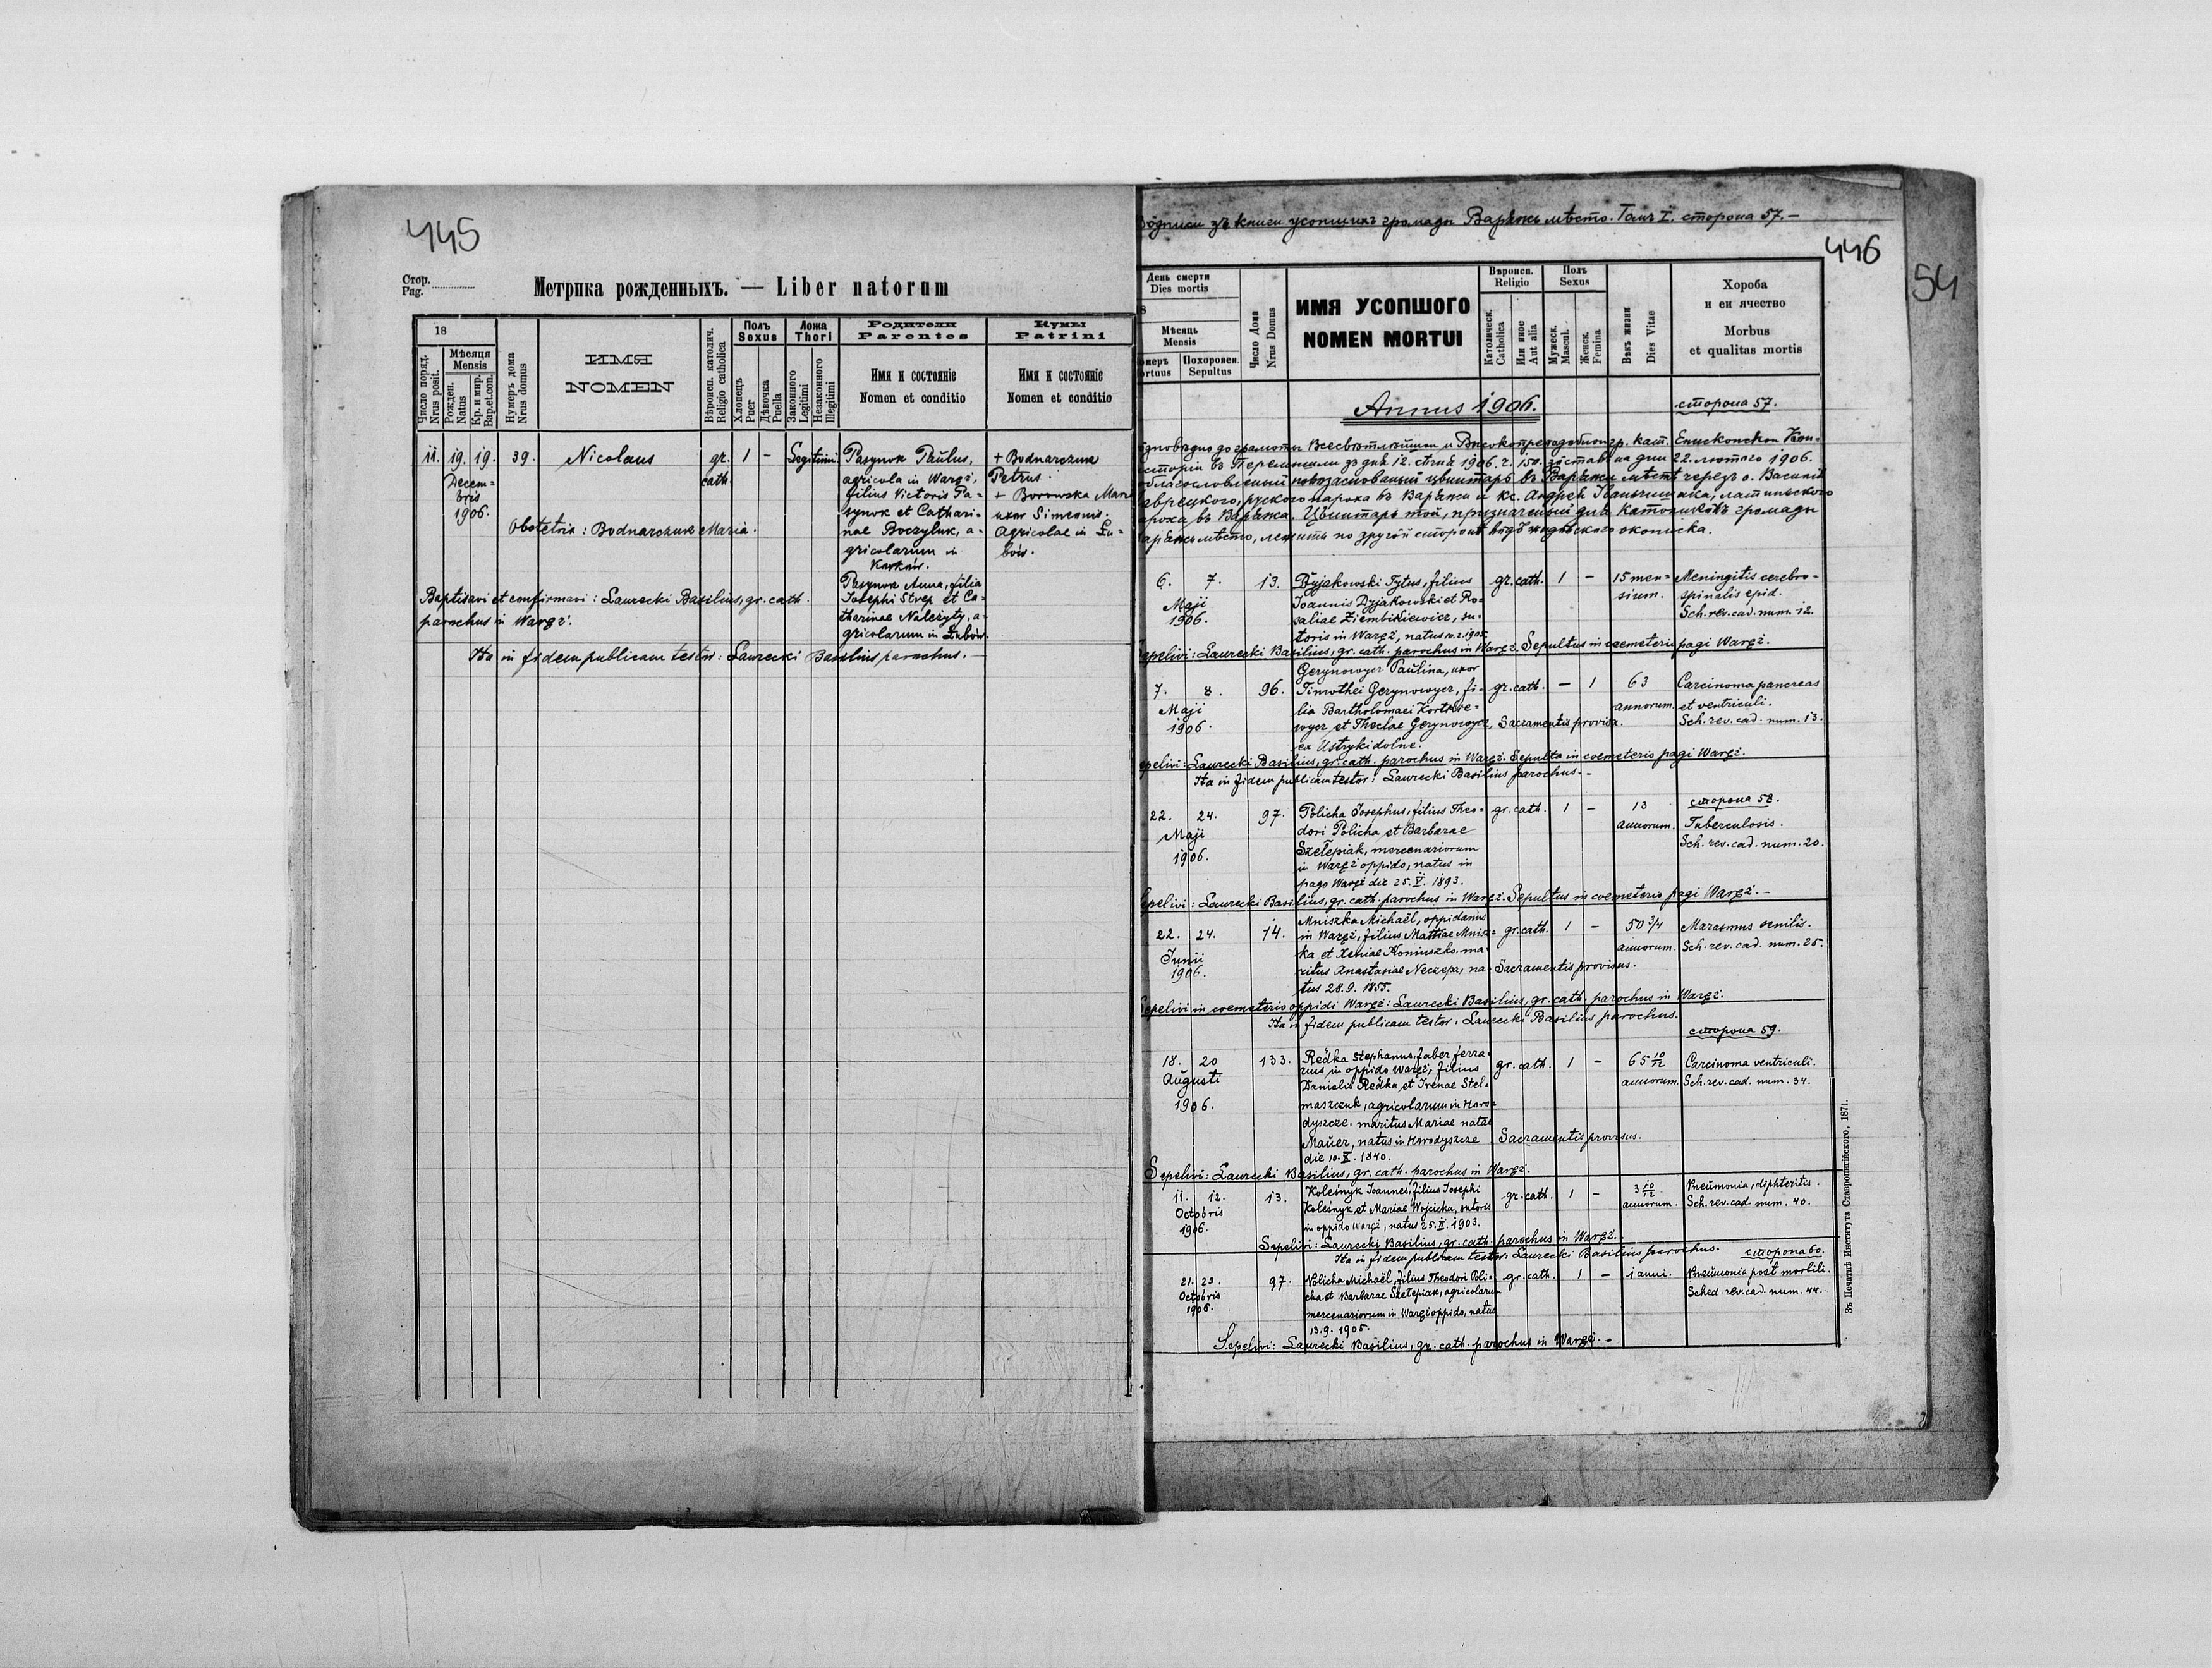 445
Стор.
Pag.
Метрика рожденныхъ. — Liber natorum
18
Число поряд.
Nrus posit.
Мѣсяця
Mensis
Рожден.
Natus
Кр. и мир.
Bap.et.con.
Нумеръ дома
Nrus domus
ИМЯ
NOMEN
Вѣроисп. католич.
Religio catholica
Полъ
Sexus
Хлопецъ
Puer
Дѣвочка
Puella
Ложа
Thori
Законного
Legitimi
Незаконного
Illegitimi
Родители
Parentes
Имя и состоянiе
Nomen et conditio
Кумы
Patrini
Имя и состоянiе
Nomen et conditio
11. 19. 19. 39. Nicolaus gr. 1 - Legitimi
Decem= cath.
bris
1906.
Obstetrix: Bodnarczuk Maria.
Pasynok Paulus,
agricola in Waręż,
filius Victoris Pa=
synok et Cathari=
nae Boczyluk, a=
gricolarum in
Pasynok Anna, filia
Josephi Strep et Ca=
tharinae Należyty, a=
gricolarum in
+ Bodnarczuk
Petrus.
+ Borowska Maria
uxor Simeonis.
Agricolae in
Baptisavi et confirmavi: Laurecki Basilius, gr. cath.
parochus in Waręż.
Ita in fidem publicam testor: Laurecki Basilius parochus. —
зъ книги усопшихъ громады Варяжъ мѣсто. Томъ I. сторона 57. —
446
54
День смерти
Dies mortis
8
Мѣсяць
Mensis
меръ
ortuus
Похоронен.
Sepultus
Число Дома
Nrus Domus
ИМЯ УСОПШОГО
NOMEN MORTUI
Вѣроисп.
Religio
Католическ.
Catholica
Или иное
Aut alia
Полъ
Sexus
Мужеск.
Mascul.
Женск.
Femina
Вѣкъ жизни
Dies Vitae
Хороба
и еи ячество
Morbus
et qualitas mortis
Annus 1906.
сторона 57.
до грамоты Всесвѣтлѣйшои и Високопреподобнои гр. кат. Епископскои Кон=
систоріи въ Перемышли зъ дня 12. сѣчня 1906. ч. 150. зôставъ на дни 22. лютого 1906.
поблагословленый новозаснований цвинтарь въ Варяжи мѣстѣ черезъ о. Василія
Лаврецкого, руского пароха въ Варяжи и кс. Андрея латиньского
пароха въ Варяжи. Цвинтарь той, призначеный для католикôвъ громады
Варяжъ мѣсто, лежить по другôй сторонѣ вôдъ жидôвского окописка.
6. 7. 13. Dyjakowski Tytus, filius gr. cath. 1 - 15 men= Meningitis cerebro=
Maji Joannis Dyjakowski et Ro= sium. spinalis epid.
1906. saliae Ziembikiewicz, su= Sch. rev. cad. num. 12.
toris in Waręż, natus 10.2.1905.
Sepelivi: Laurecki Basilius, gr. cath. parochus in Waręż. Sepultus in coemeterio pagi Waręż.
Gerynowycz Paulina, uxor
7. 8. 96. Timothei Gerynowycz, fi= gr. cath. - 1 63 Carcinoma pancreas
Maji lia Bartholomaei annorum. et ventriculi.
1906. et Theclae Gerynowycz, Sacramentis provisa. Sch. rev. cad. num. 13.
ex Ustryki dolne.
Sepelivi: Laurecki Basilius, gr. cath. parochus in Waręż. Sepulta in coemeterio pagi Waręż.
Ita in fidem publicam testor: Laurecki Basilius parochus. —
сторона 58.
22. 24. 97. Policha Josephus, filius Theo= gr. cath. 1 - 13 Tuberculosis.
Maji dori Policha et Barbarae annorum. Sch. rev. cad. num. 20.
1906. Szełepiak, mercenariorum
in Waręż oppido, natus in
pago Waręż die 25. V. 1893.
Sepelivi: Laurecki Basilius, gr. cath. parochus in Waręż. Sepultus in coemeterio pagi Waręż. —
Mniszka Michaël, oppidanus
22. 24. 14. in Waręż, filius Matthiae Mnisz= gr. cath. 1 - 50 3/4 Marasmus senilis.
Junii ka et Xeniae Kominszko, ma= annorum. Sch. rev. cad. num. 25.
1906. ritus Anastasiae Neczepa, na= Sacramentis provisus.
tus 28. 9. 1855.
Sepelivi in coemeterio oppidi Waręż: Laurecki Basilius, gr. cath. parochus in Waręż.
Ita in fidem publicam testor: Laurecki Basilius parochus.
сторона 59.
18. 20 133. Redka Stephanus, faber ferra= gr. cath. 1 - 65 10/12 Carcinoma ventriculi.
Augusti rius in oppido Waręż, filius annorum. Sch. rev. cad. num. 34.
1906. Danielis Redka et Irenae Stel=
maszczuk, agricolarum in Horo=
dyszcze, maritus Mariae natae
Mauer, natus in Horodyszcze Sacramentis provisus.
die 10. X. 1840.
Sepelivi: Laurecki Basilius, gr. cath. parochus in Waręż.
11. 12. 13. Koleśnyk Joannes, filius Josephi gr. cath. 1 - 3 10/12 Pneumonia, diphteritis.
Octobris Koleśnyk et Mariae Wojcicka, sutoris annorum. Sch. rev. cad. num. 40.
1906. in oppido Waręż, natus 25. II. 1903.
Sepelivi: Laurecki Basilius, gr. cath. parochus in Waręż.
Ita in fidem publicam testor: Laurecki Basilius parochus. сторона 60.
21. 23. 97. Policha Michaël, filius Theodori Poli= gr. cath. 1 - 1 anni. Pneumonia post morbili.
Octobris cha et Barbarae Szełepiak, agricolarum Sched. rev. cad. num. 44.
1906. mercenariorum in Waręż oppido, natus
13. 9. 1905.
Sepelivi: Laurecki Basilius, gr. cath. parochus in Waręż. —
Зъ Печатнѣ Института Ставропигiйского, 1871.